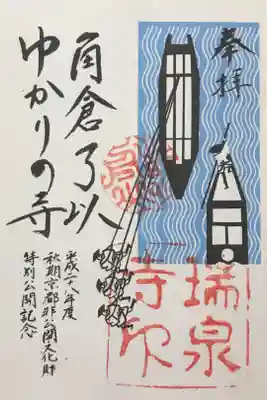 奉拝
角倉了以
ゆかりの寺
平成二十八年度
秋期京都非公開文化財
特別公開記念
瑞泉
寺印